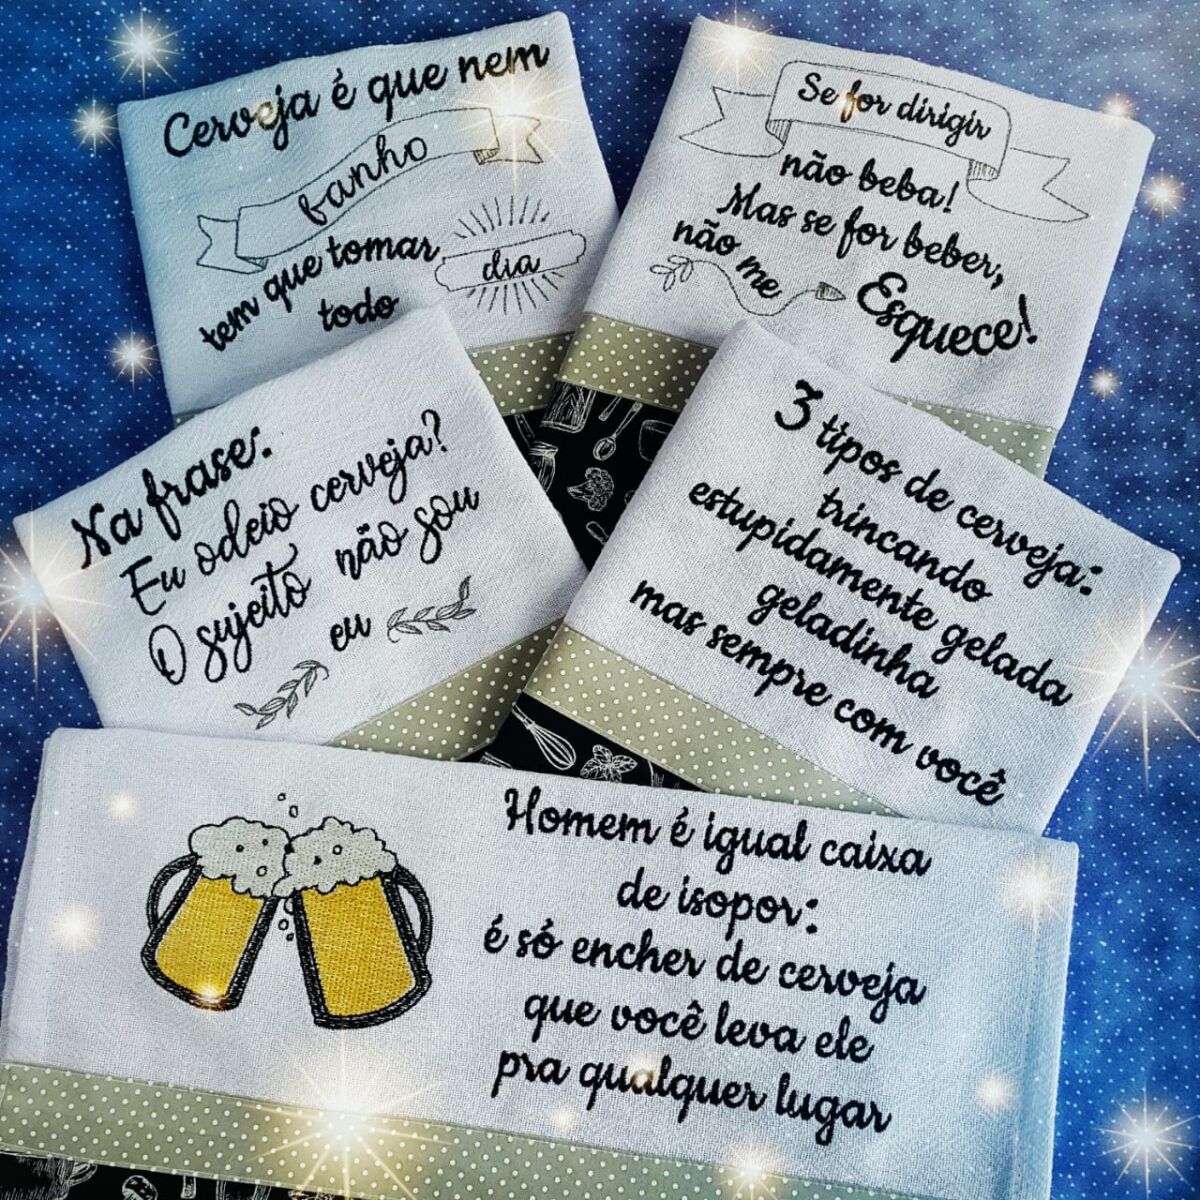 Cerveja é que nem
banho
tem que tomar
todo dia
Se for dirigir
não beba!
Mas se for beber,
não me Esquece!
Na frase:
Eu odeio cerveja?
O sujeito não sou
eu
3 tipos de cerveja:
trincando
estupidamente gelada
geladinha
mas sempre com você
Homem é igual caixa
de isopor:
é só encher de cerveja
que você leva ele
pra qualquer lugar